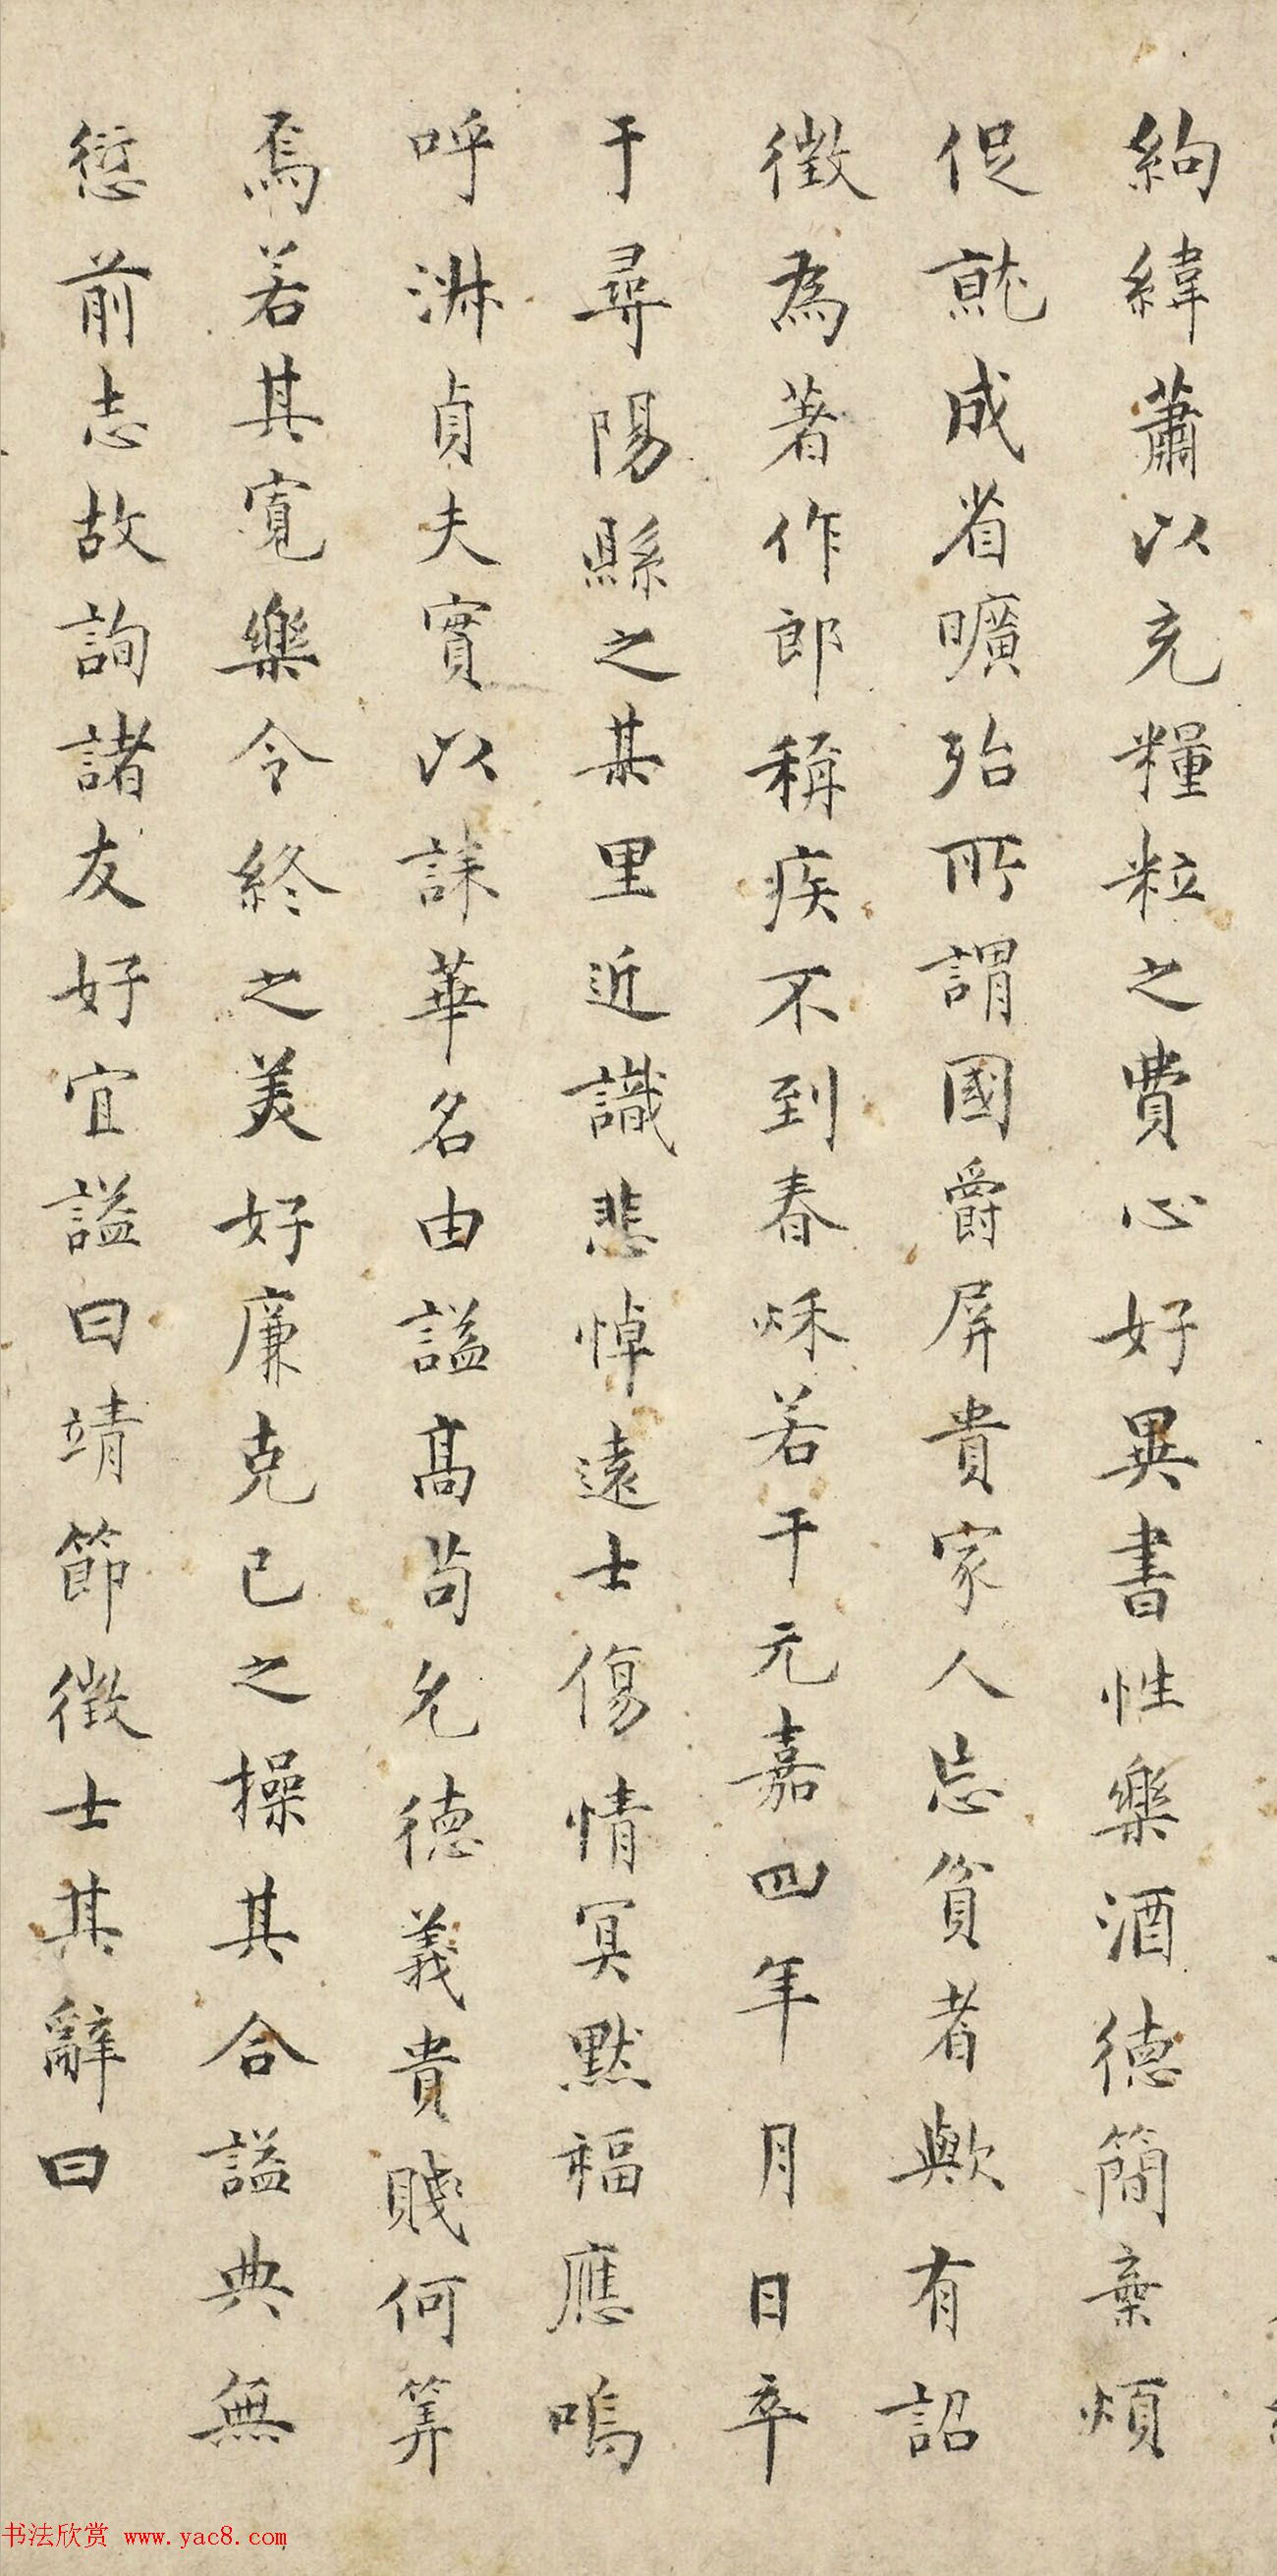 絇緯蕭以充糧粒之費心好異書性樂酒德簡棄煩
促就成省曠殆所謂國爵屏貴家人忘貧者歟有詔
徵為著作郎稱疾不到春秌若干元嘉四年月日卒
于尋陽縣之某里近識悲悼遠士傷情冥默福應嗚
呼淋貞夫實以誄華名由謚高苟允德義貴賤何筭
焉若其寬樂令終之美好廉克己之操其合謚典無
愆前志故詢諸友好宜謚曰靖節徵士其辭曰
书法欣赏 www.yac8.com